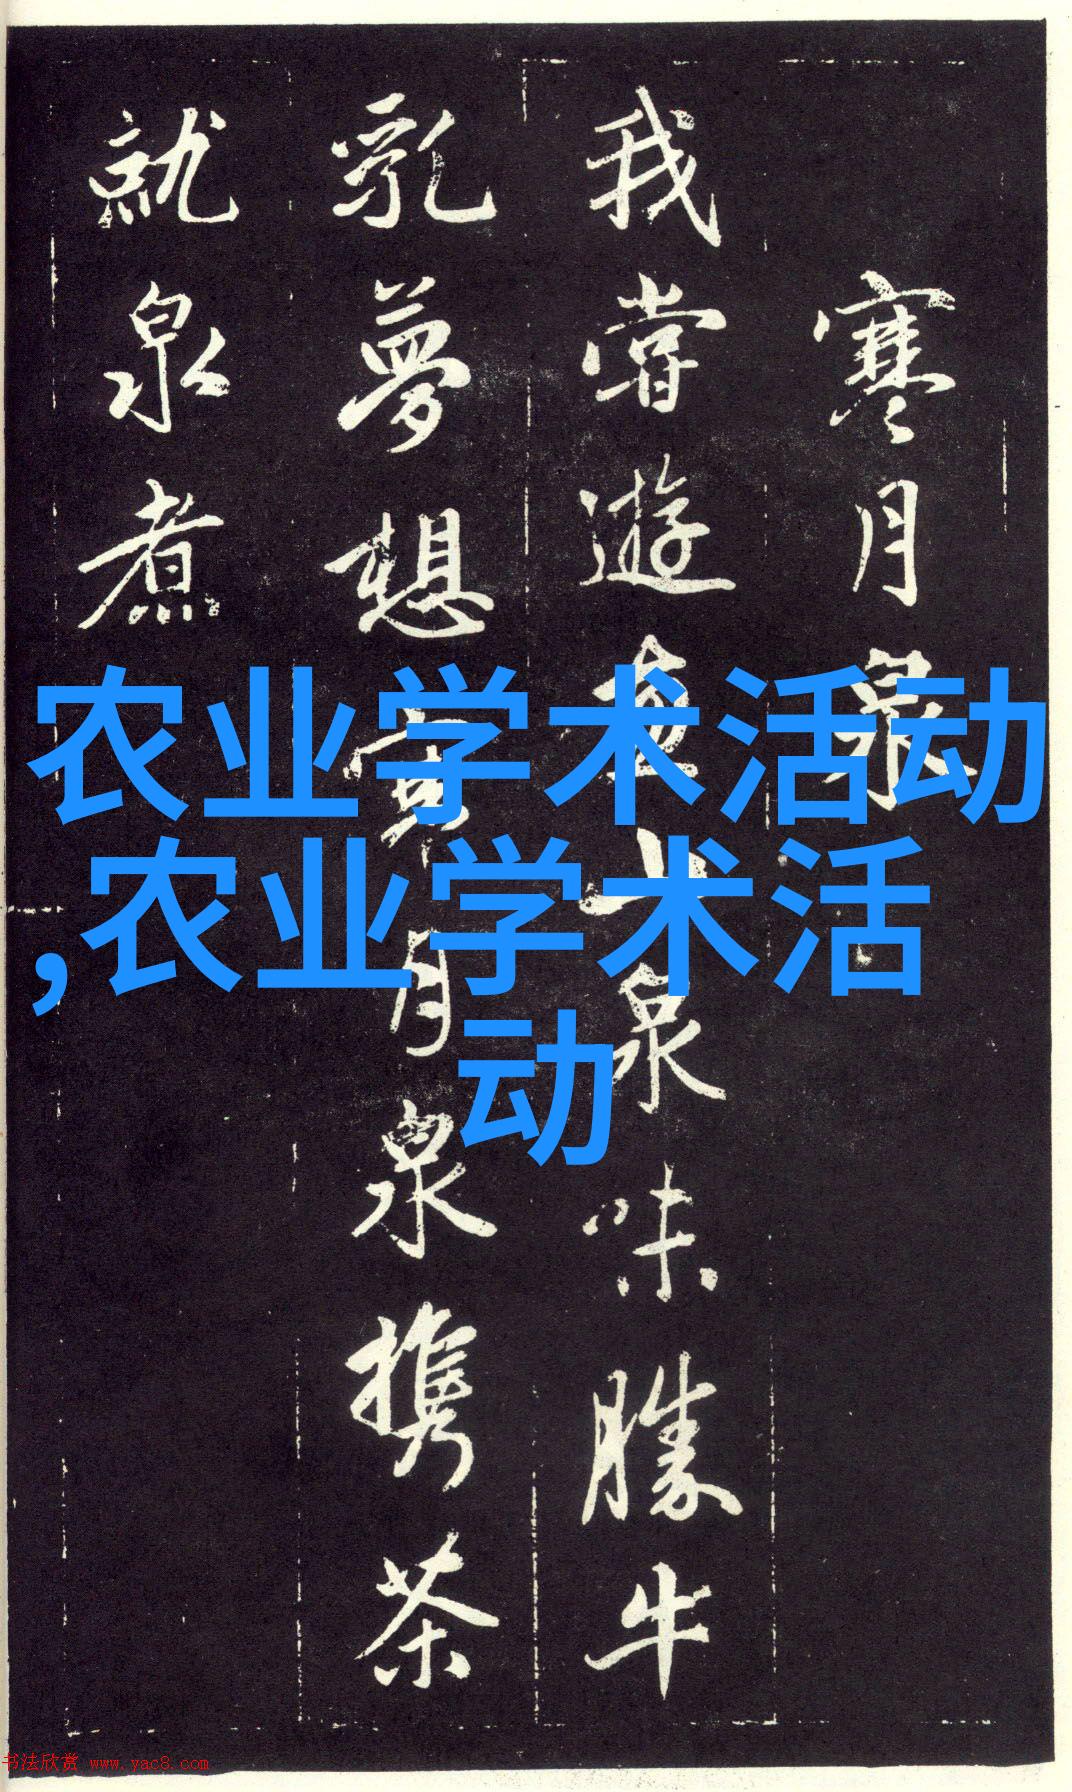 寒月泉
我嘗遊惠山泉味勝牛
乳夢想寒月泉携茶
就泉煮
农业学术活动
,农业学术活
动
书法欣赏 www.yac8.com